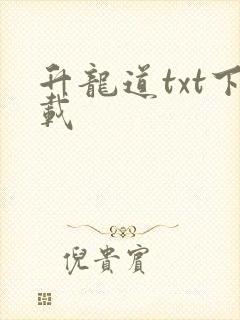 升龍道txt下
載
倪貴賓